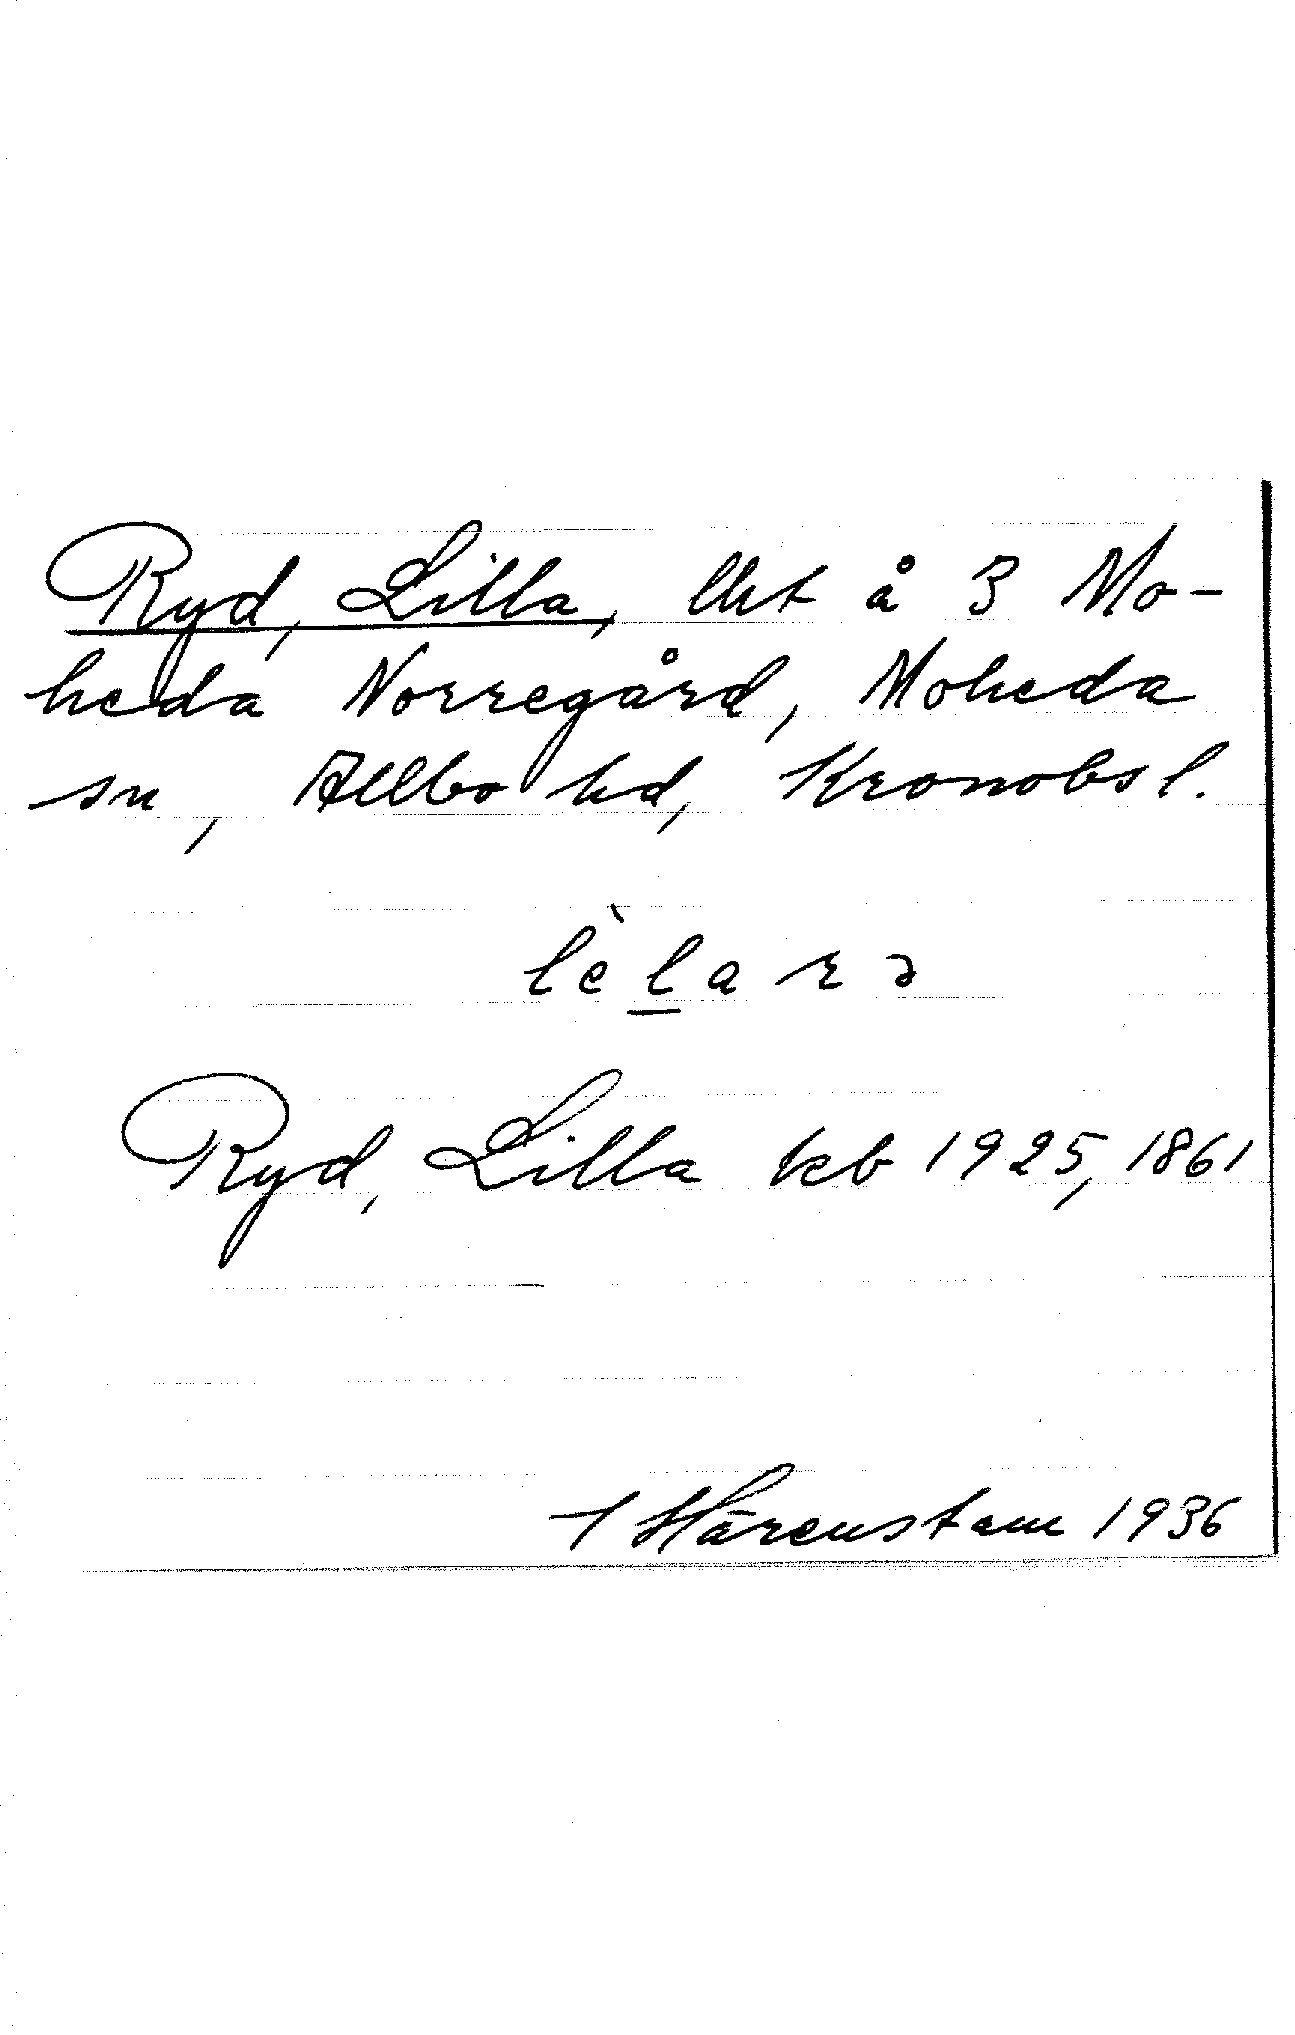 Ryd, Lilla, lht å 3 Mo-
heda Norregård, Moheda
sn, Allbo hd, Kronobs l.
lèlarə
Ryd, Lilla kb 1925, 1861
T Härenstam 1936